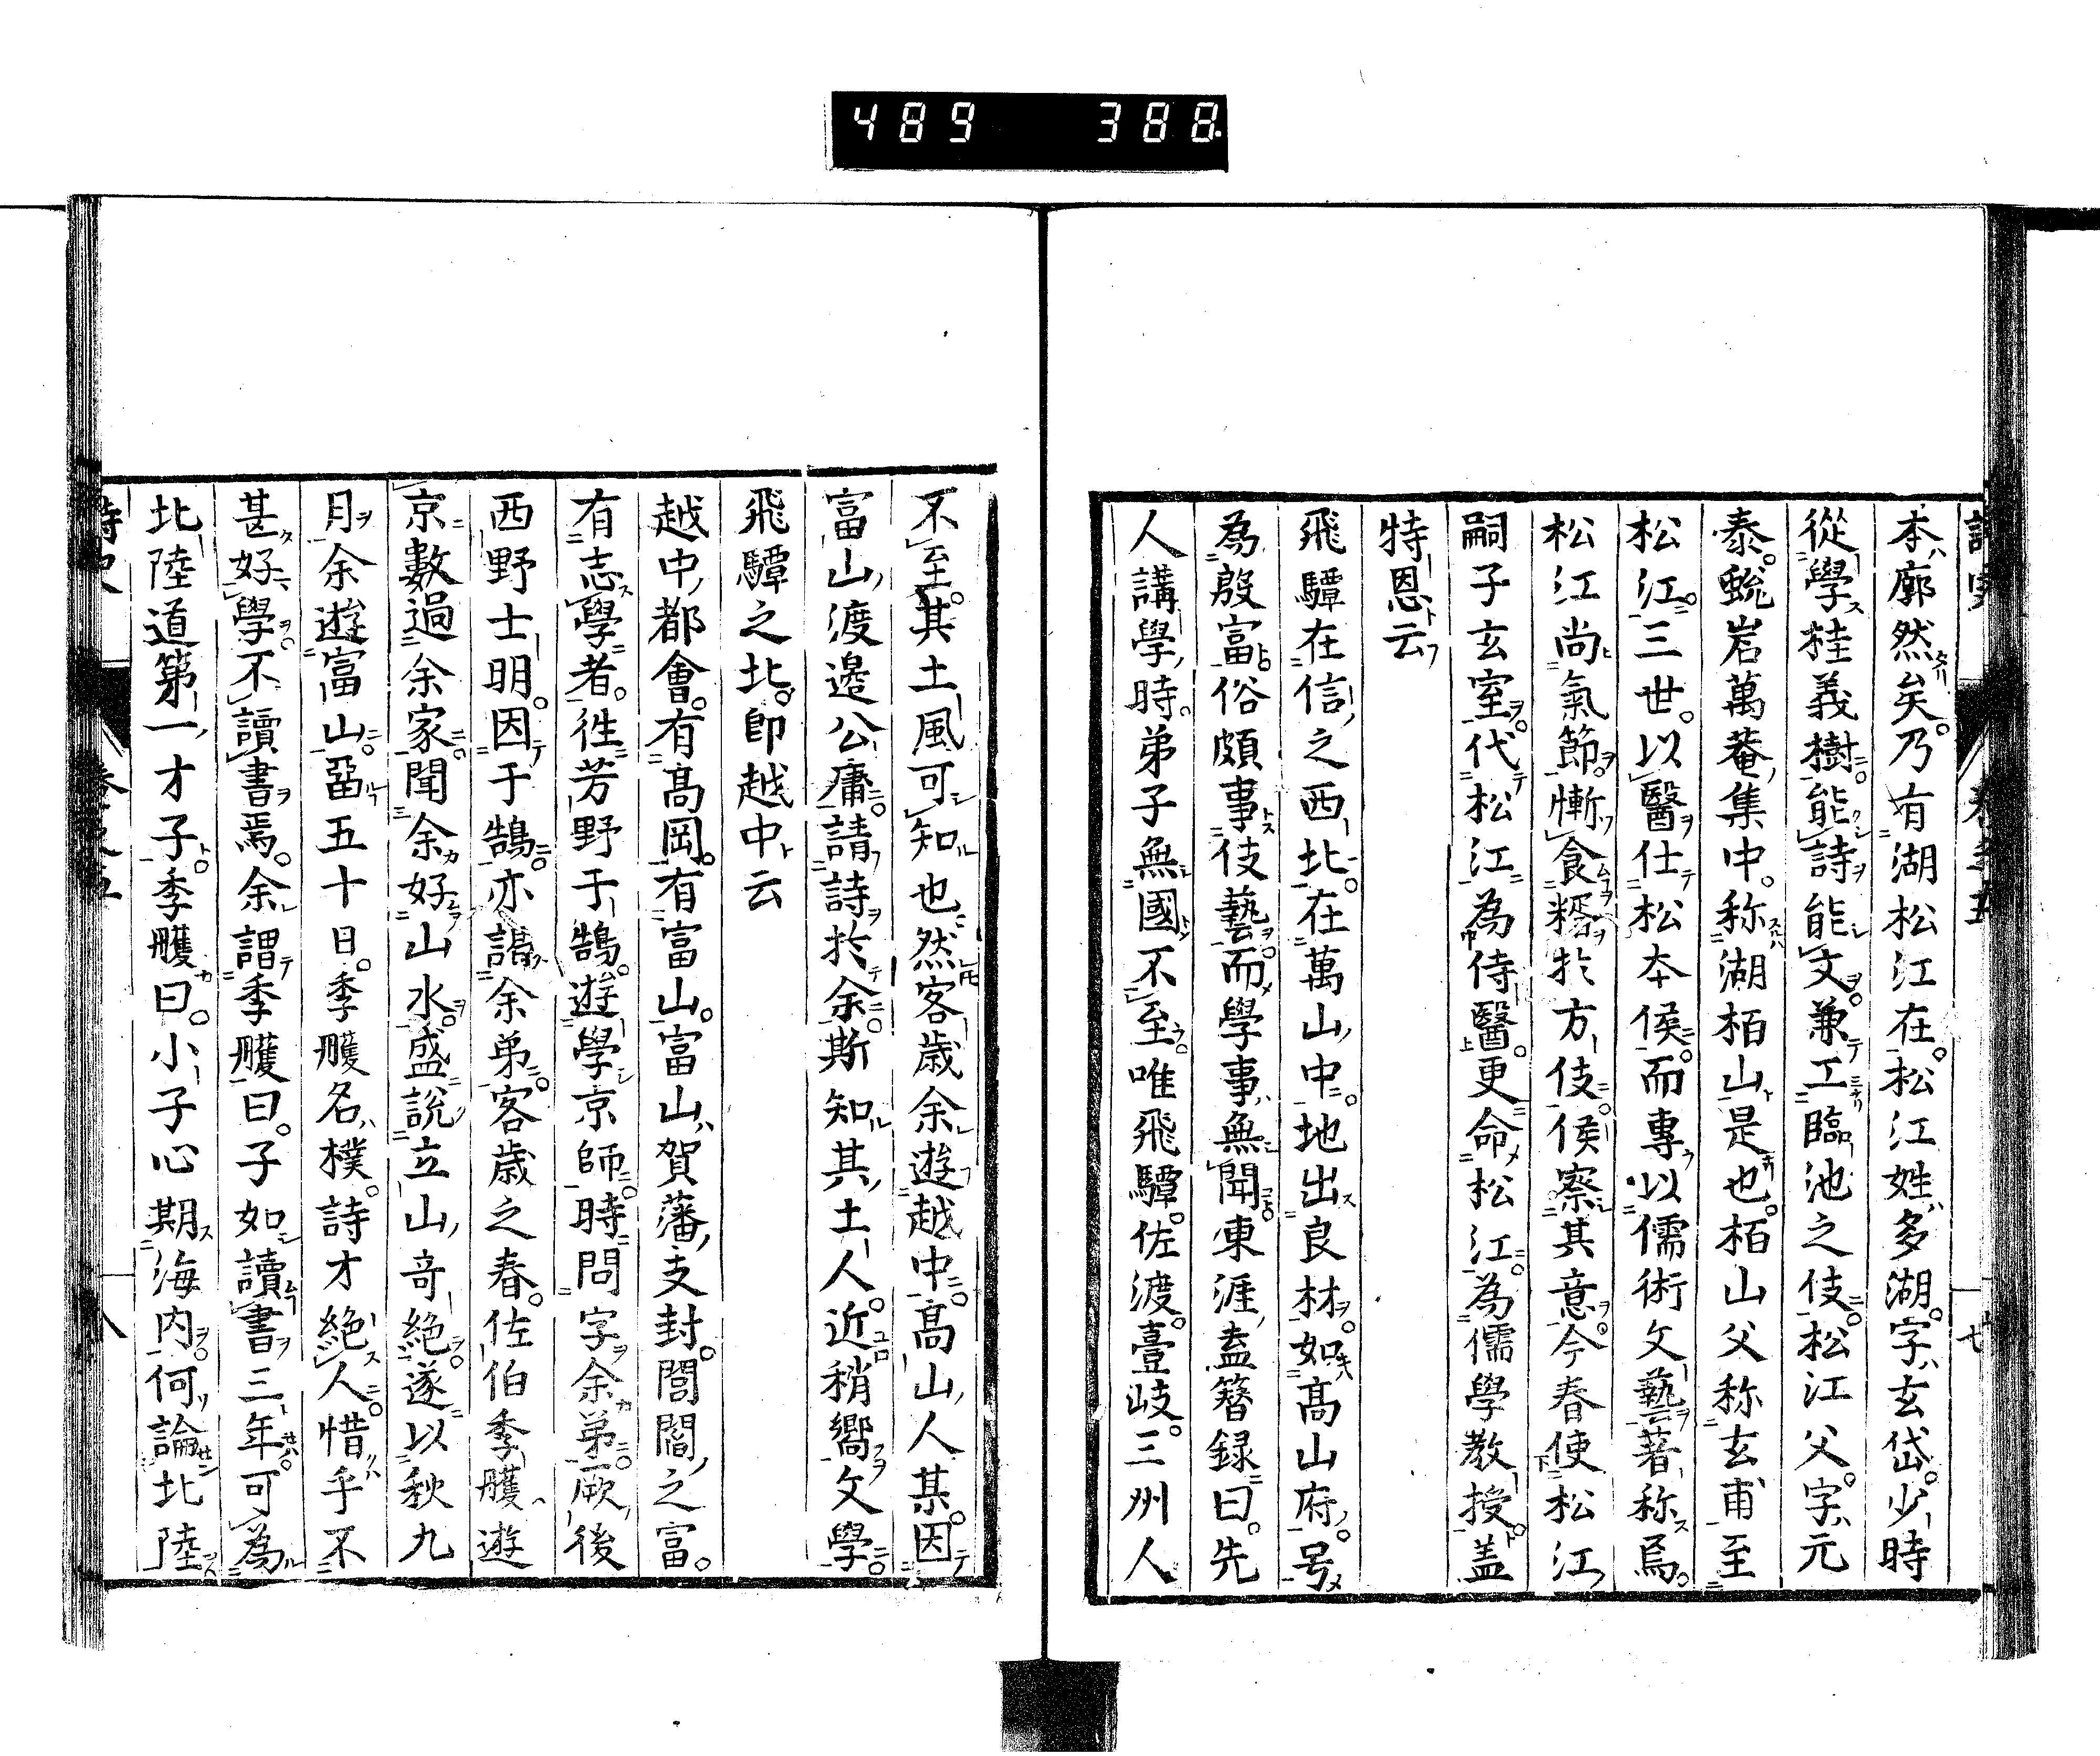 489 388
本廓然矣乃有湖松江在松江姓多湖字玄岱少時
從學桂義樹能詩能文兼工臨池之伎松江父字元
泰蛻岩萬菴集中称湖栢山是也栢山父称玄甫至
松江三世以醫仕松本侯而專以儒術文藝著称焉
松江尚氣節慚食糈於方伎侯察其意今春使松江
嗣子玄室代松江為侍醫更命松江為儒學教授盖
特恩云
飛驒在信之西北在萬山中地出良材如高山府号
為殷富俗頗事伎藝而學事無聞東涯盍簪録曰先
人講學時弟子無國不至唯飛驒佐渡壹岐三州人
不至其土風可知也然客歳余遊越中高山人某因
富山渡邉公庸請詩於余斯知其土人近稍嚮文學
飛驒之北即越中云
越中都會有高岡有富山富山賀藩支封閭閻之富
有志學者徃芳野于鵠遊學京師時問字余弟厥後
西野士明因于鵠亦謁余弟客歳之春佐伯季艧遊
京數過余家聞余好山水盛說立山竒絶遂以秋九
月余遊富山畱五十日季艧名樸詩才絶人惜乎不
甚好學不讀書焉余謂季艧曰子如讀書三年可為
北陸道第一才子季艧曰小子心期海内何論北陸
詩史 卷之五 八